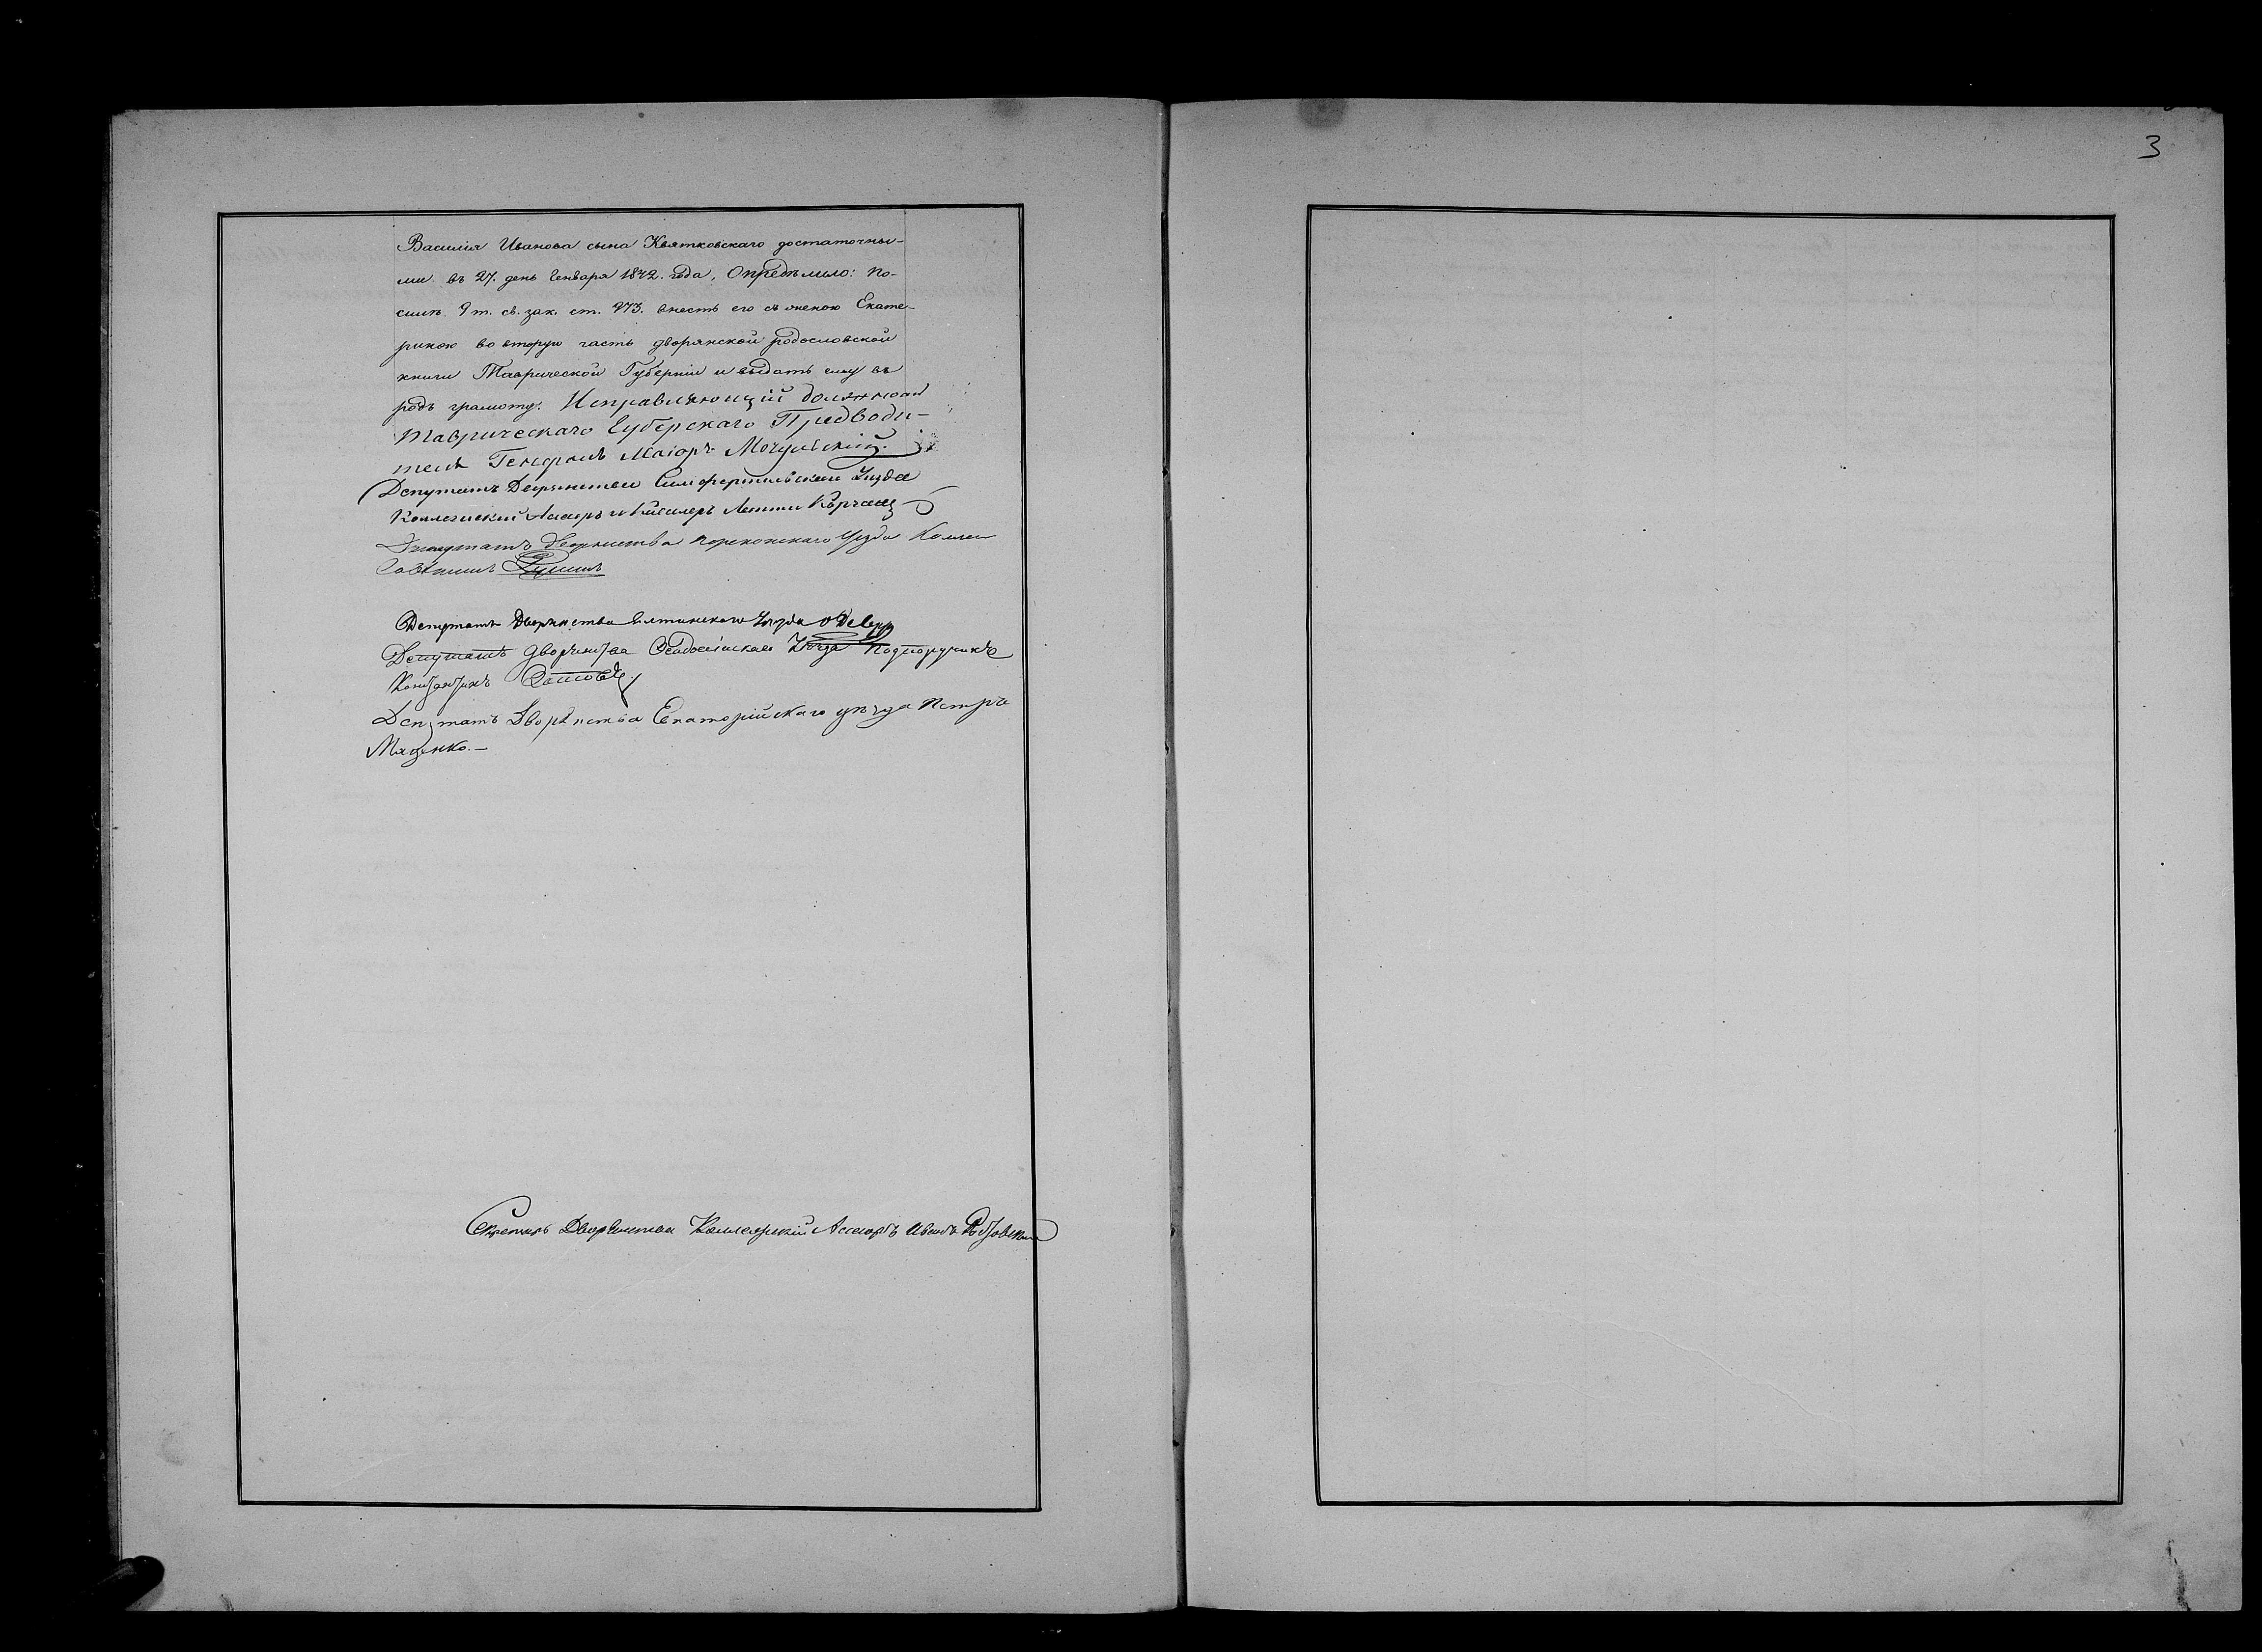 Василія Иванова сына Квятковскаго достаточны-
ми въ 27. день Генваря 1842. года, Опредѣлило: по-
силѣ 9 т. св. зак. ст. 973. внесть его съ женою Екате-
риною во вторую часть дворянской родословной
книги Таврической Губерніи и выдать ему въ
родъ грамоту. Исправляющій должность
Таврическаго Губерскаго Предводи-
теля Генералъ Маіоръ
Депутатъ Дворянства Симферопольскаго Уезда
Коллежскій Ассесоръ и Кавалеръ
Депутатъ Дворянства Перекопскаго Уезда Коллеж
Совѣтникъ
Депутатъ Дворянства Ялтинскаго Уезда
Депутатъ Дворянства Ѳеодосійскаго Уезда Подпоручикъ
Константинъ
Депутатъ Дворянства Евпаторійскаго уѣзда Петръ
Маценко.—
Секретарь Дворянства Коллежскій Ассесоръ Иванъ
3